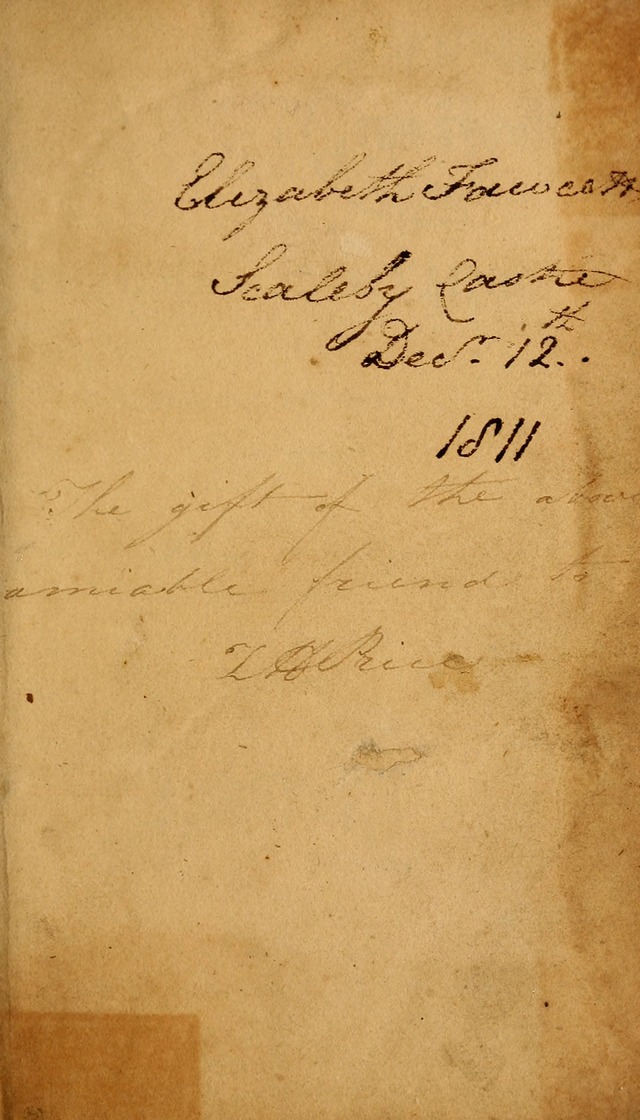 Elizabeth Fawcett
Scaleby Castle
Decr. 12th.
1811
The gift of the above
amiable friend to